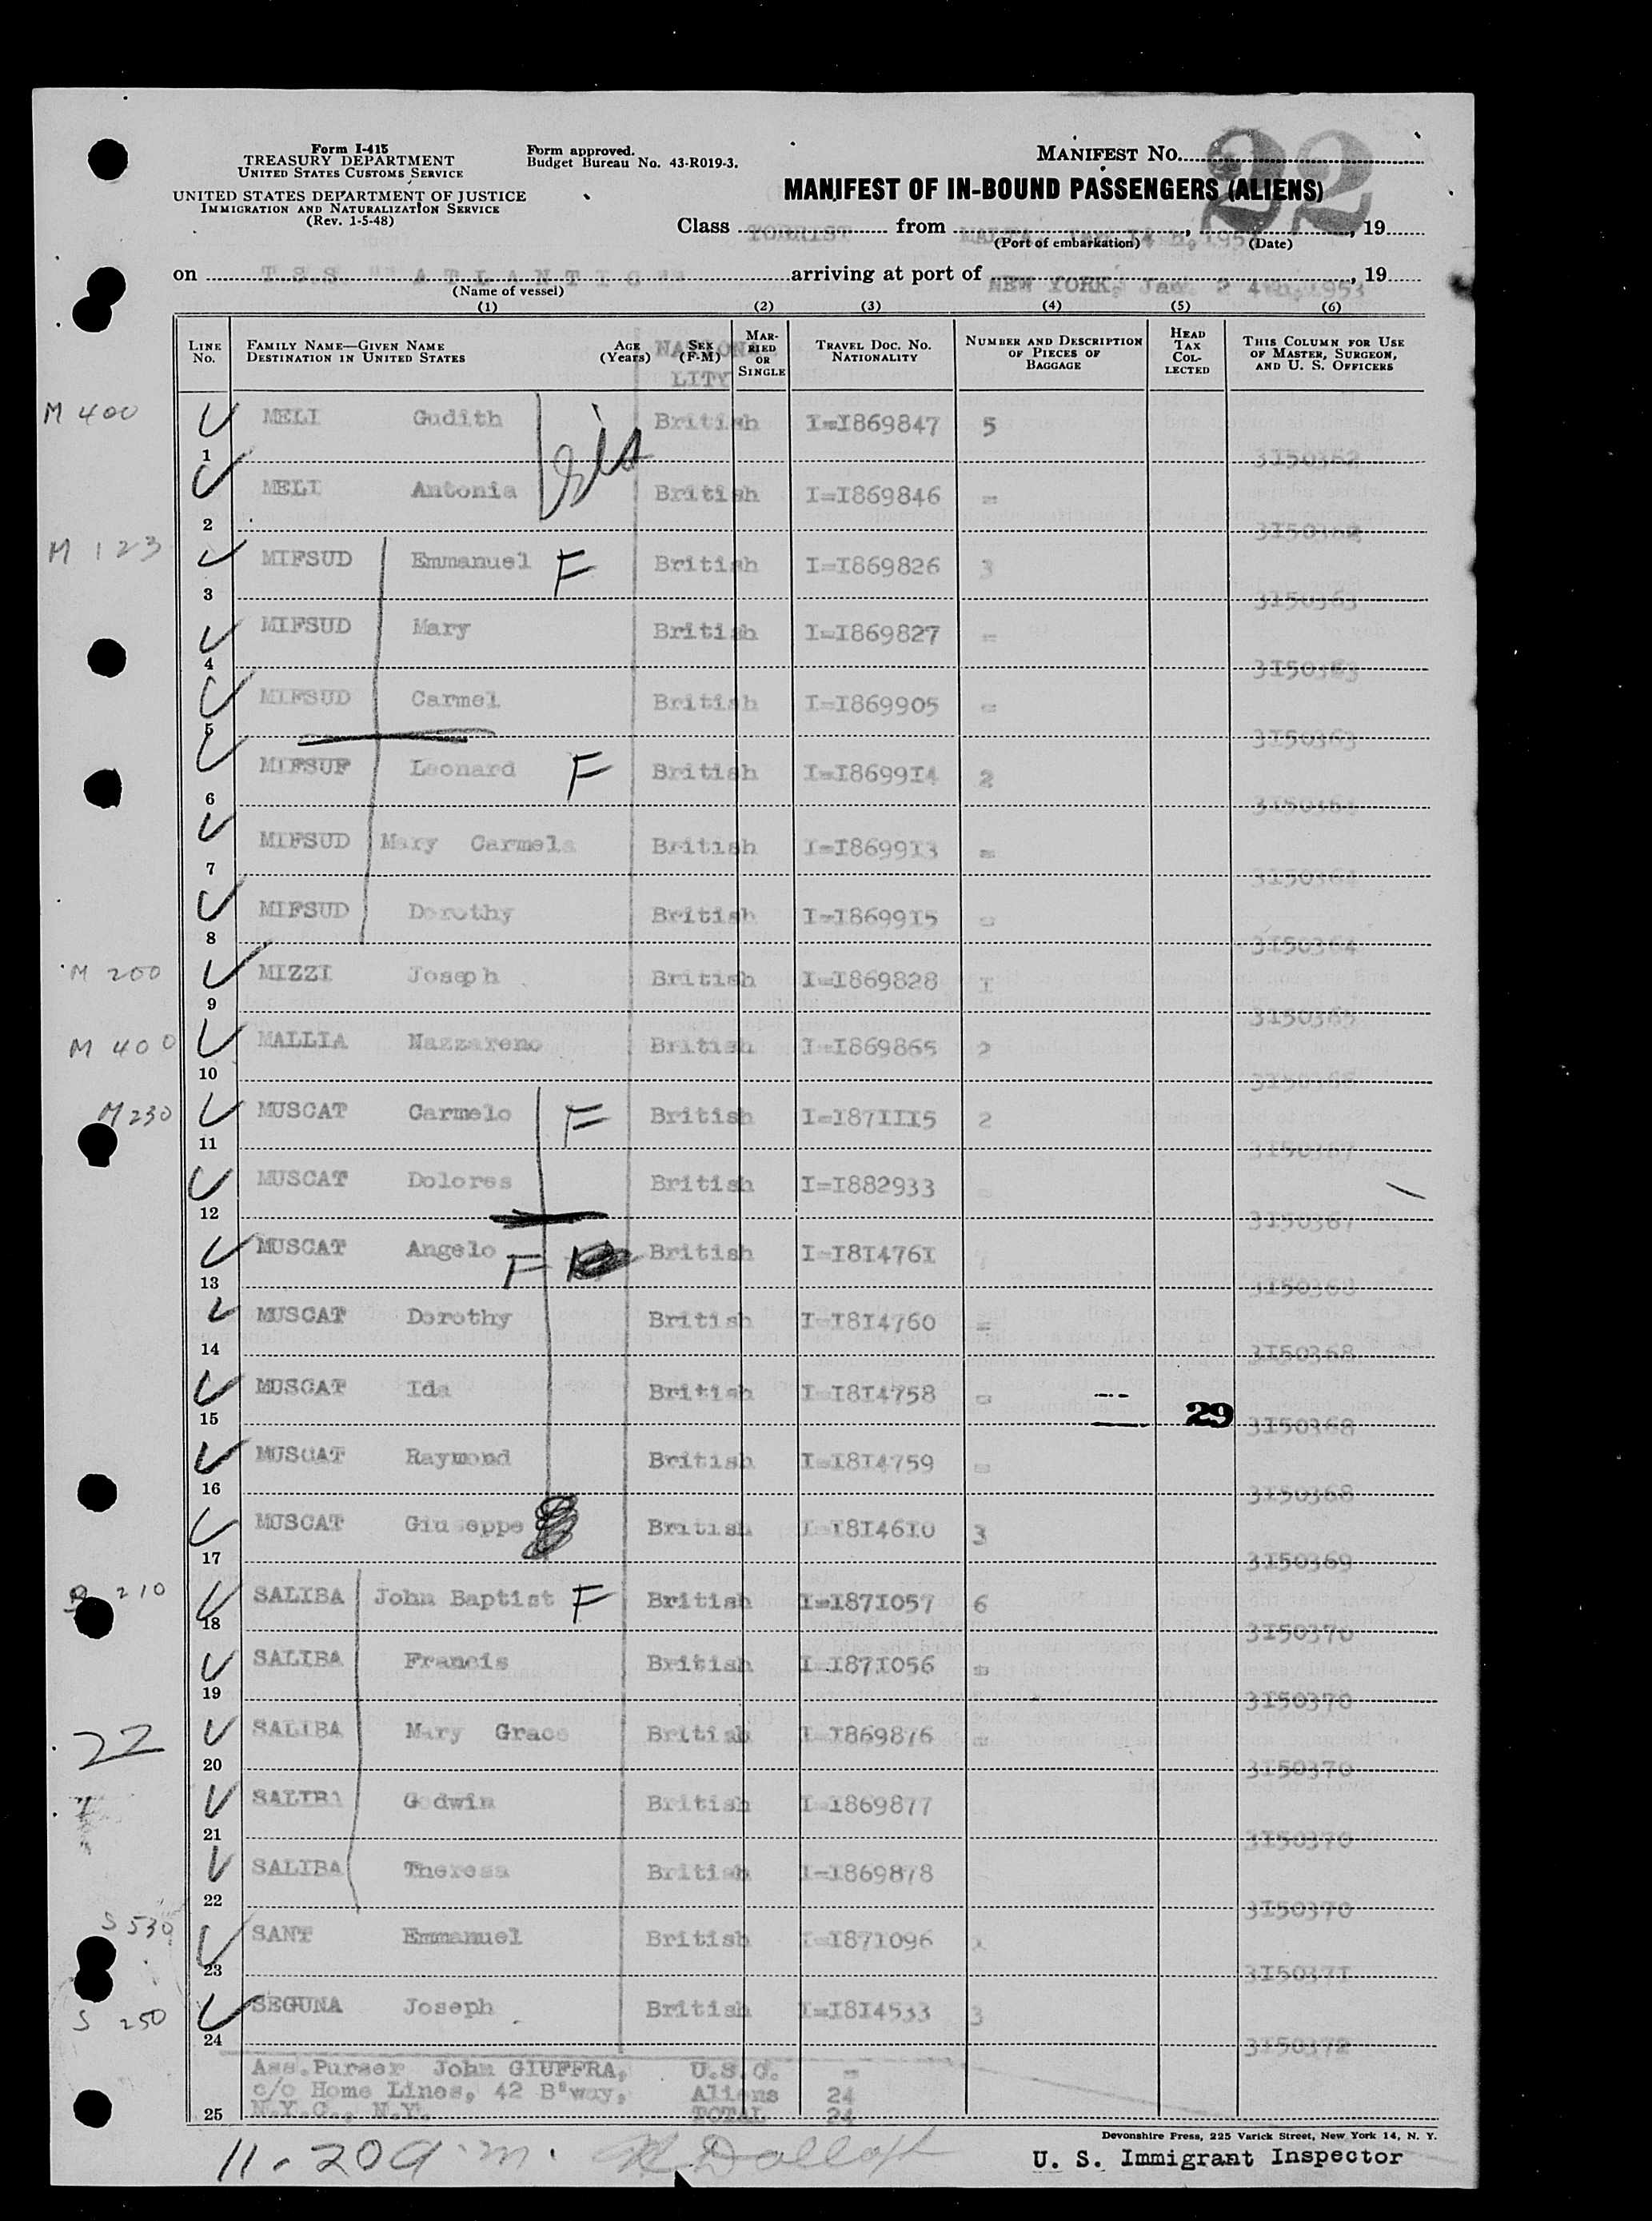 Form I-415
TREASURY DEPARTMENT
UNITED STATES CUSTOMS SERVICE
UNITED STATES DEPARTMENT OF JUSTICE
IMMIGRATION AND NATURALIZATION SERVICE
(Rev. 1-5-48)
Form approved.
Budget Bureau No. 43-R019-3.
MANIFEST NO. 22
MANIFEST OF IN-BOUND PASSENGERS (ALIENS)
Class TOURIST from MALTA, Jan 14th, 1953, 19
(Port of embarkation) (Date)
on T.S.S. "ATLANTIC" arriving at port of NEW YORK, Jan. 24th, 1953, 19
(Name of vessel)
(1) (2) (3) (4) (5) (6)
LINE NO. FAMILY NAME—GIVEN NAME DESTINATION IN UNITED STATES AGE (Years) SEX (F-M) NATIONALITY MARRIED OR SINGLE TRAVEL DOC. NO. NATIONALITY NUMBER AND DESCRIPTION OF PIECES OF BAGGAGE HEAD TAX COLLECTED THIS COLUMN FOR USE OF MASTER, SURGEON, AND U. S. OFFICERS
M 400 1 MELI Gudith sis British I=I869847 5 3I50362
2 MELI Antonia British I=I869846 = 3I50362
M 123 3 MIFSUD Emmanuel F British I=I869826 3 3I50363
4 MIFSUD Mary British I=I869827 = 3I50363
5 MIFSUD Carmel British I=I869905 = 3I50363
6 MIFSUF Leonard F British I=I8699I4 2 3I50364
7 MIFSUD Mary Carmela British I=I8699I3 = 3I50364
8 MIFSUD Dorothy British I=I8699I5 = 3I50364
M 200 9 MIZZI Joseph British I=I869828 I 3I50365
M 400 10 MALLIA Nazzareno British I=I869865 2 3I50366
M 230 11 MUSCAT Carmelo F British I=I87III5 2 3I50367
12 MUSCAT Dolores British I=I882933 3I50367
13 MUSCAT Angelo F British I=I8I476I 3I50368
14 MUSCAT Dorothy British I=I8I4760 = 3I50368
15 MUSCAT Ida British I=I8I4758 = 29 3I50368
16 MUSCAT Raymond British I=I8I4759 = 3I50368
17 MUSCAT Giuseppe British I=I8I46I0 3 3I50369
210 18 SALIBA John Baptist F British I=I87I057 6 3I50370
19 SALIBA Francis British I=I87I056 = 3I50370
22 20 SALIBA Mary Grace British I=I869876 = 3I50370
21 SALIBA Godwin British I=I869877 3I50370
22 SALIBA Theresa British I=I869878 3I50370
S 530 23 SANT Emmanuel British I=I87I096 3I5037I
S 250 24 SEGUNA Joseph British I=I8I4533 3 3I50372
Ass.Purser John GIUFFRA, U.S.C. =
c/o Home Lines, 42 B'way, Aliens 24
25 N.Y.C., N.Y. TOTAL 24
Devonshire Press, 225 Varick Street, New York 14, N. Y.
11.20 a.m.
U. S. Immigrant Inspector